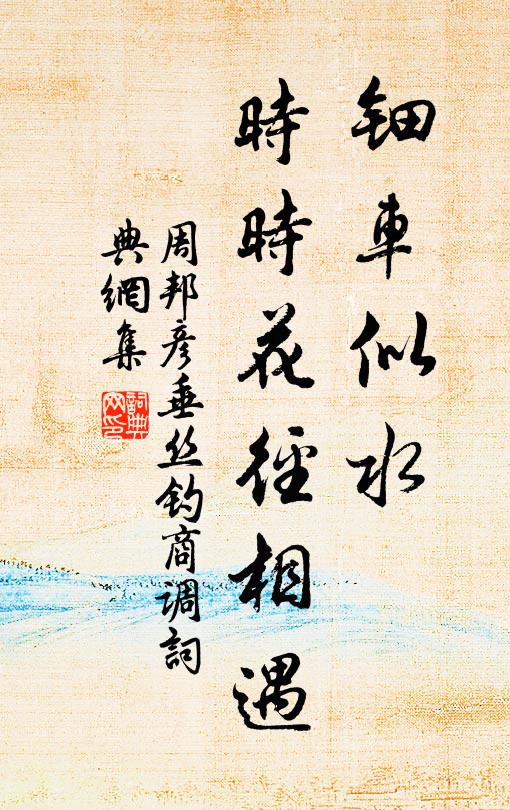 钿車似水
時時花徑相遇
周邦彦垂丝钓商调詞
典網集
詞典网印